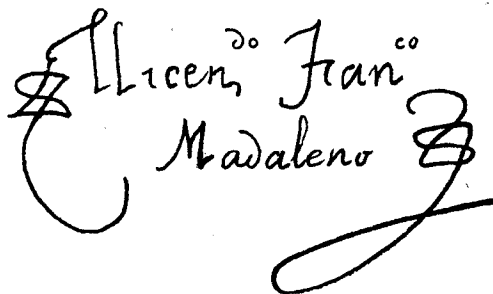 El licen^do Fran^co
Madaleno